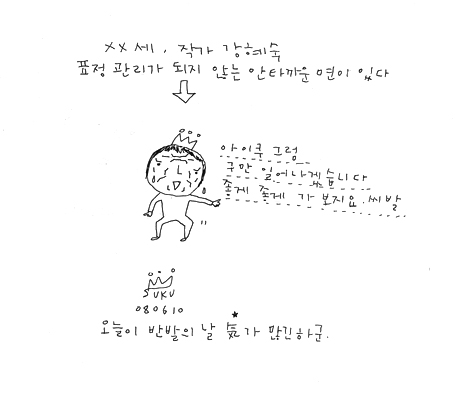 XX세, 작가 강혜숙
표정 관리가 되지 않는 안타까운 면이 있다
아이쿠 그럼
구만 일어나겠습니다
좋게 좋게 가 보지요. 씨발
SUKU
080610
오늘이 반발의 날 효가 많긴하군.